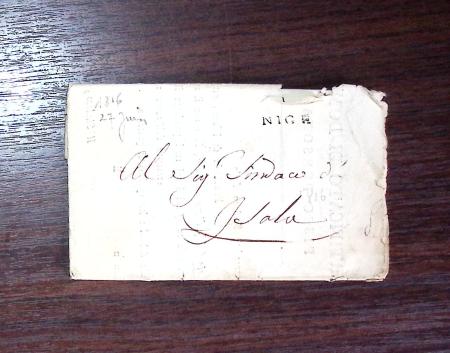 1816
27 Juin
NICE
Al Sig.r Sindaco di
Isola